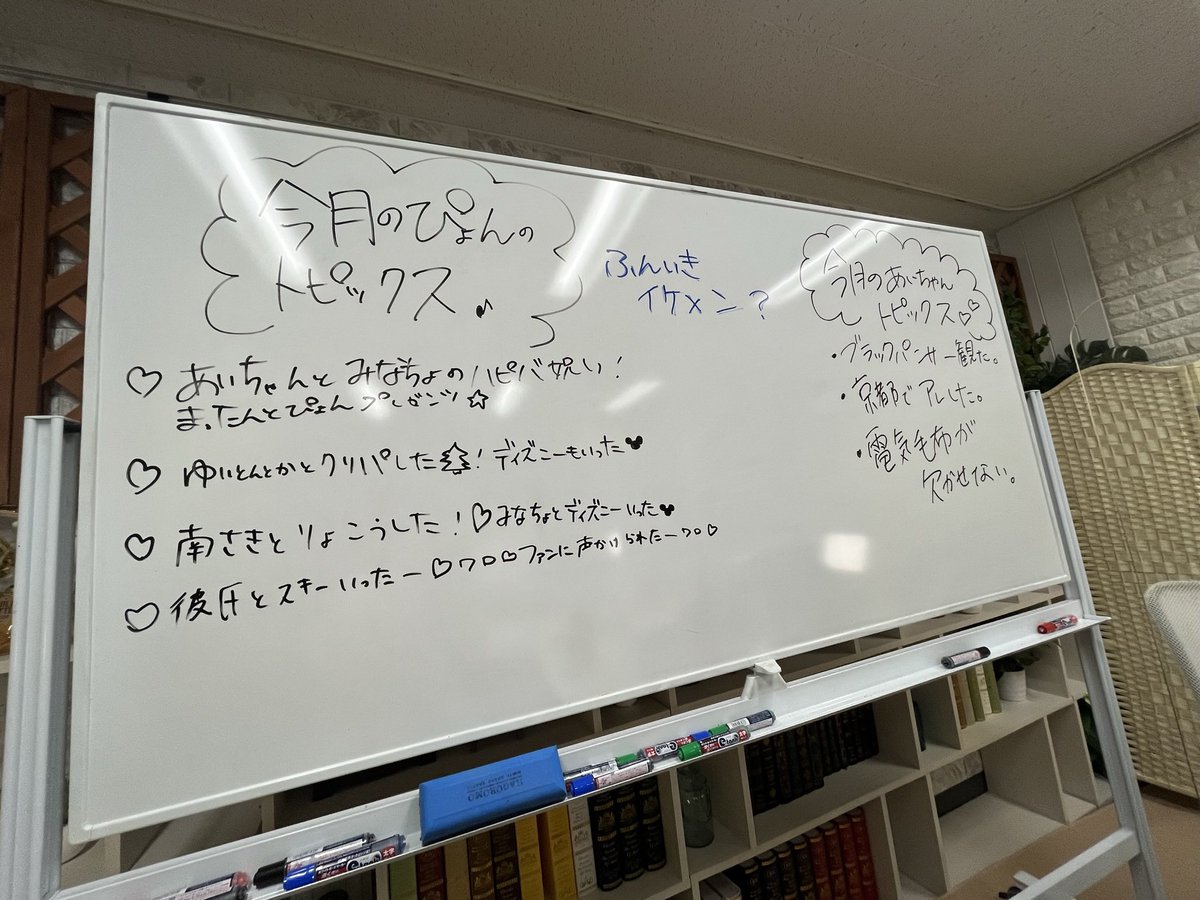 今月のぴょんの
トピックス♪
♡ あいちゃんとみなちょのハピバ祝い!
またたんとぴょんプレゼンツ☆
♡ ゆいとんとかとクリパした! ディズニーもいった
♡ 南さきとりょこうした! ♡みなちょとディズニーいった
♡ 彼氏とスキーいったー♡ワロ♡ファンに声かけられたーワロ♡
ふんいき
イケメン?
今月のあいちゃん
トピックス♡♡
・ブラックパンサー観た。
・京都でアレした。
・電気毛布が
欠かせない。
HAGOROMO